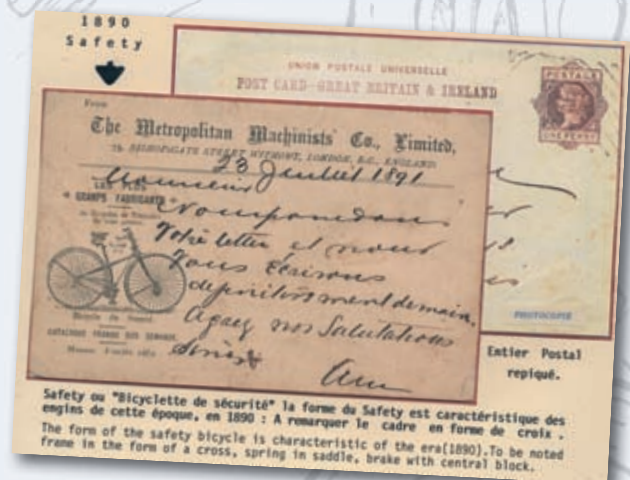 1890
Safety
UNION POSTALE UNIVERSELLE
POST CARD-GREAT BRITAIN & IRELAND
POSTAGE
ONE PENNY
From
The Metropolitan Machinists' Co., Limited,
75, BISHOPSGATE STREET WITHOUT, LONDON, E.C., ENGLAND
23 Juillet 1891
Monsieur
LES PLUS
GRANDS FABRICANTS
Nous
Votre lettre et nous
Vous écrirons
demain.
Agréez nos Salutations
Bicycle de
CATALOGUE FRANCO SUR DEMANDE.
PHOTOCOPIE
Entier Postal
repiqué.
Safety ou "Bicyclette de sécurité" la forme du Safety est caractéristique des
engins de cette époque, en 1890 : A remarquer le cadre en forme de croix .
The form of the safety bicycle is characteristic of the era(1890).To be noted
frame in the form of a cross, spring in saddle, brake with central block.